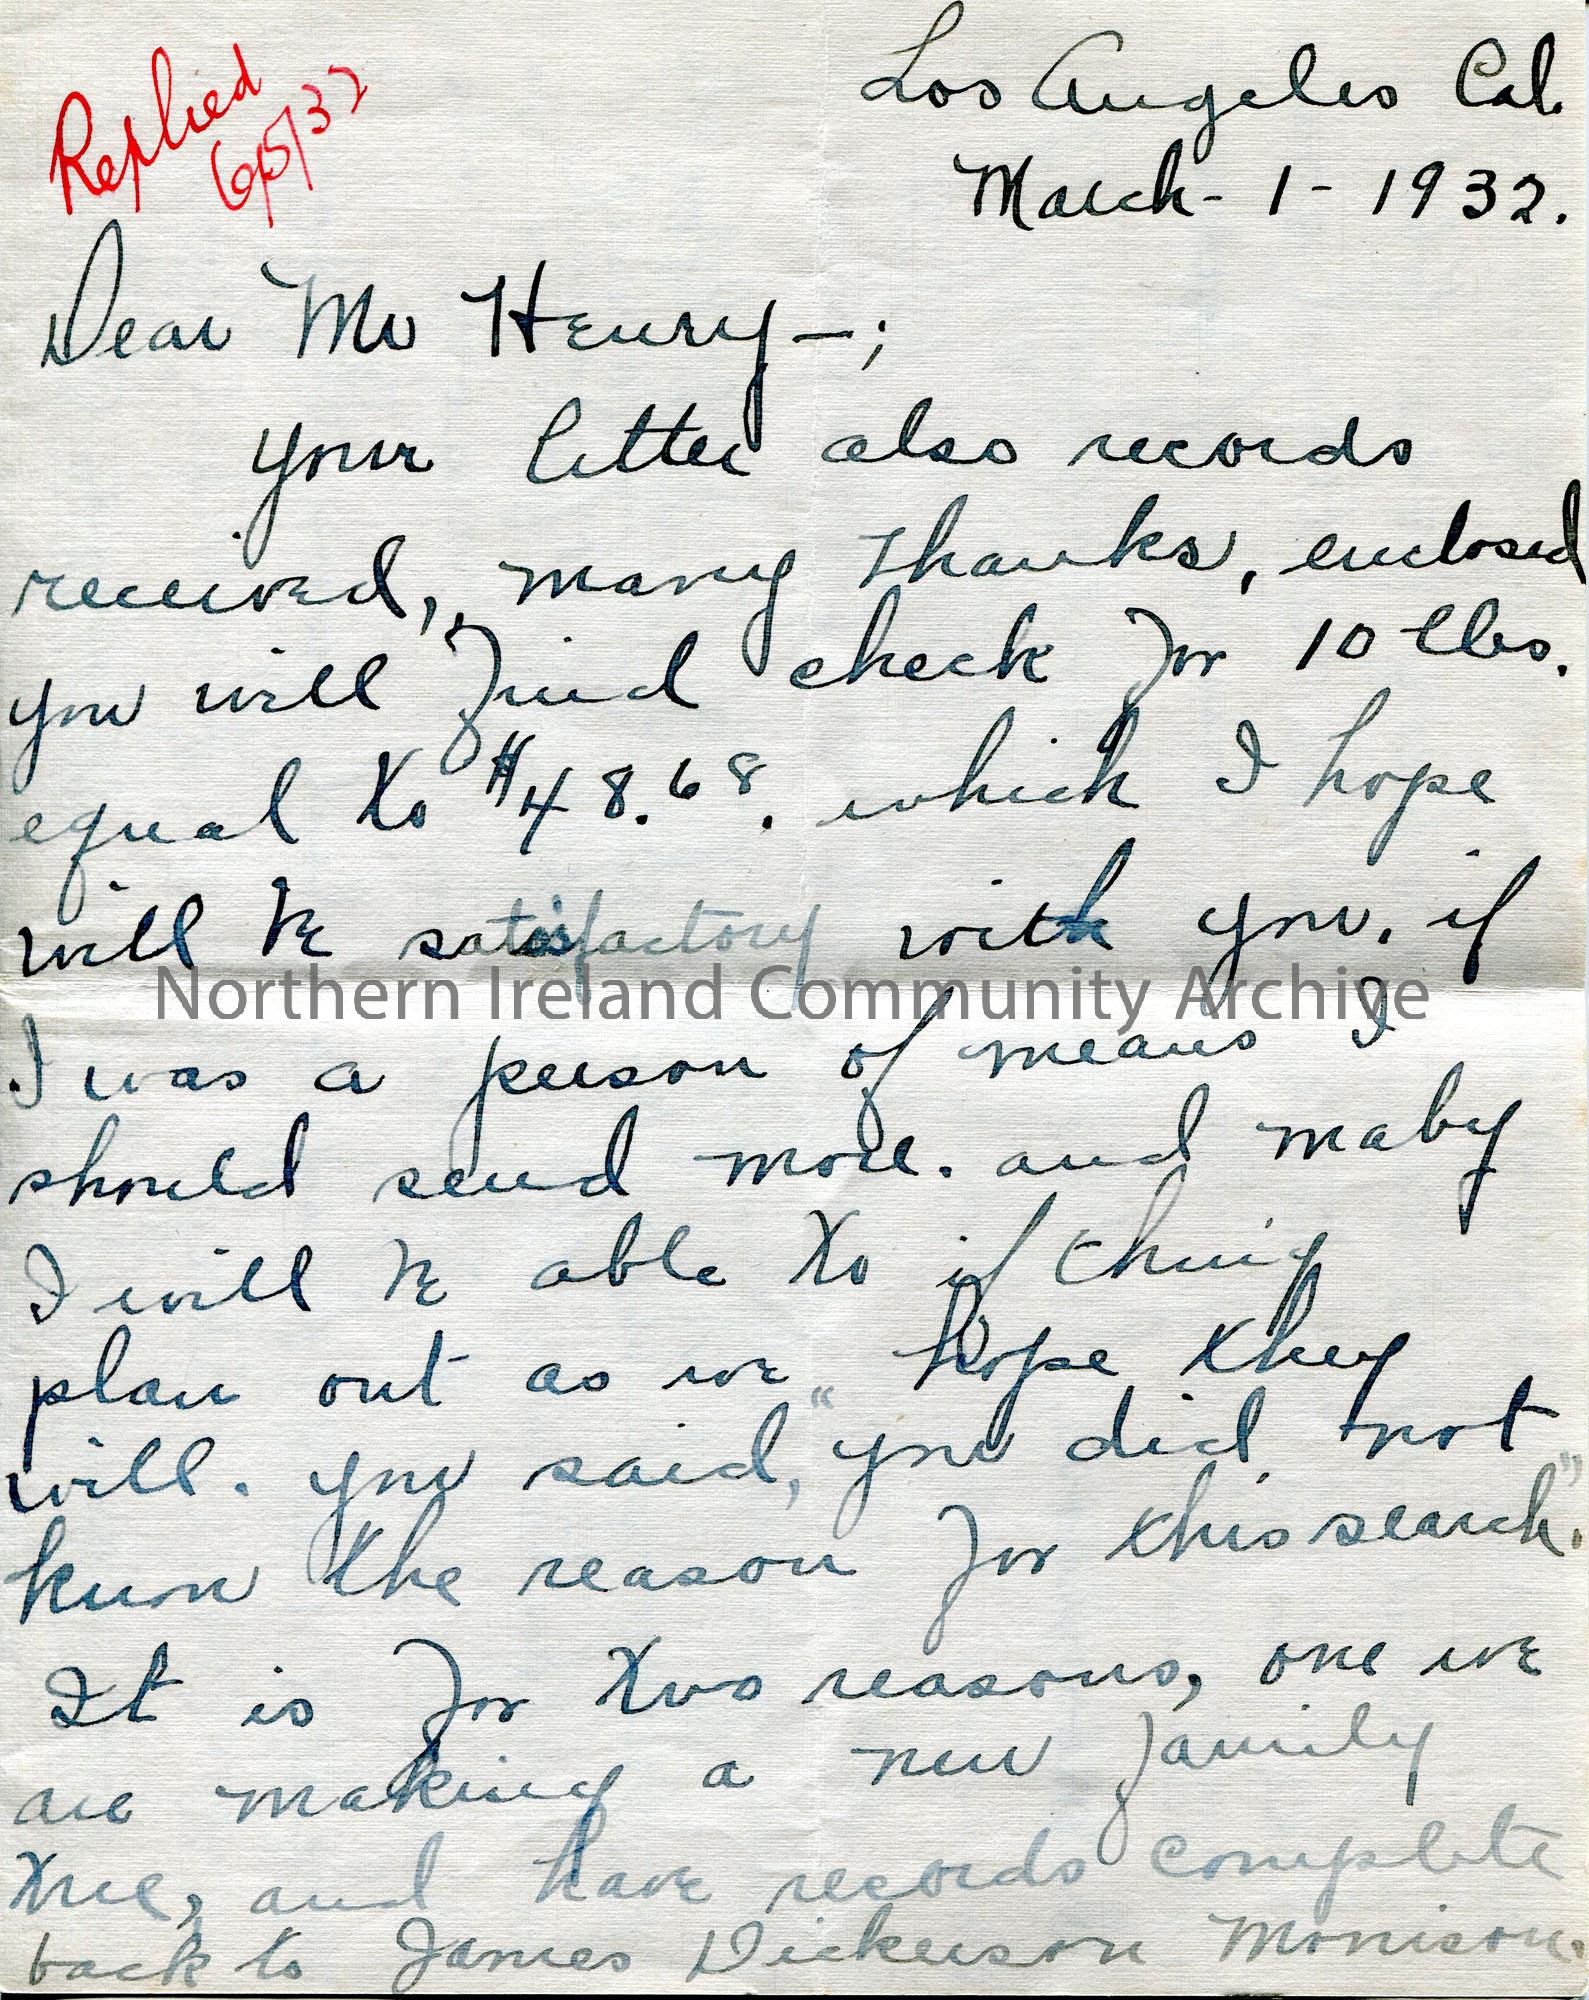 Replied
6/5/32
Los Angeles Cal.
March - 1 - 1932.
Dear Mr Henry -;
your letter also records
received, many thanks, enclosed
you will find check for 10 lbs.
equal to $48.68. which I hope
will be satisfactory with you. if
Northern Ireland Community Archive
I was a person of means I
should send more. and maby
I will be able to if thing
plan out as we hope they
will. you said, "you did not
know the reason for this search."
It is for two reasons, one we
are making a new family
tree, and have records complete
back to James Dickerson Morrison.